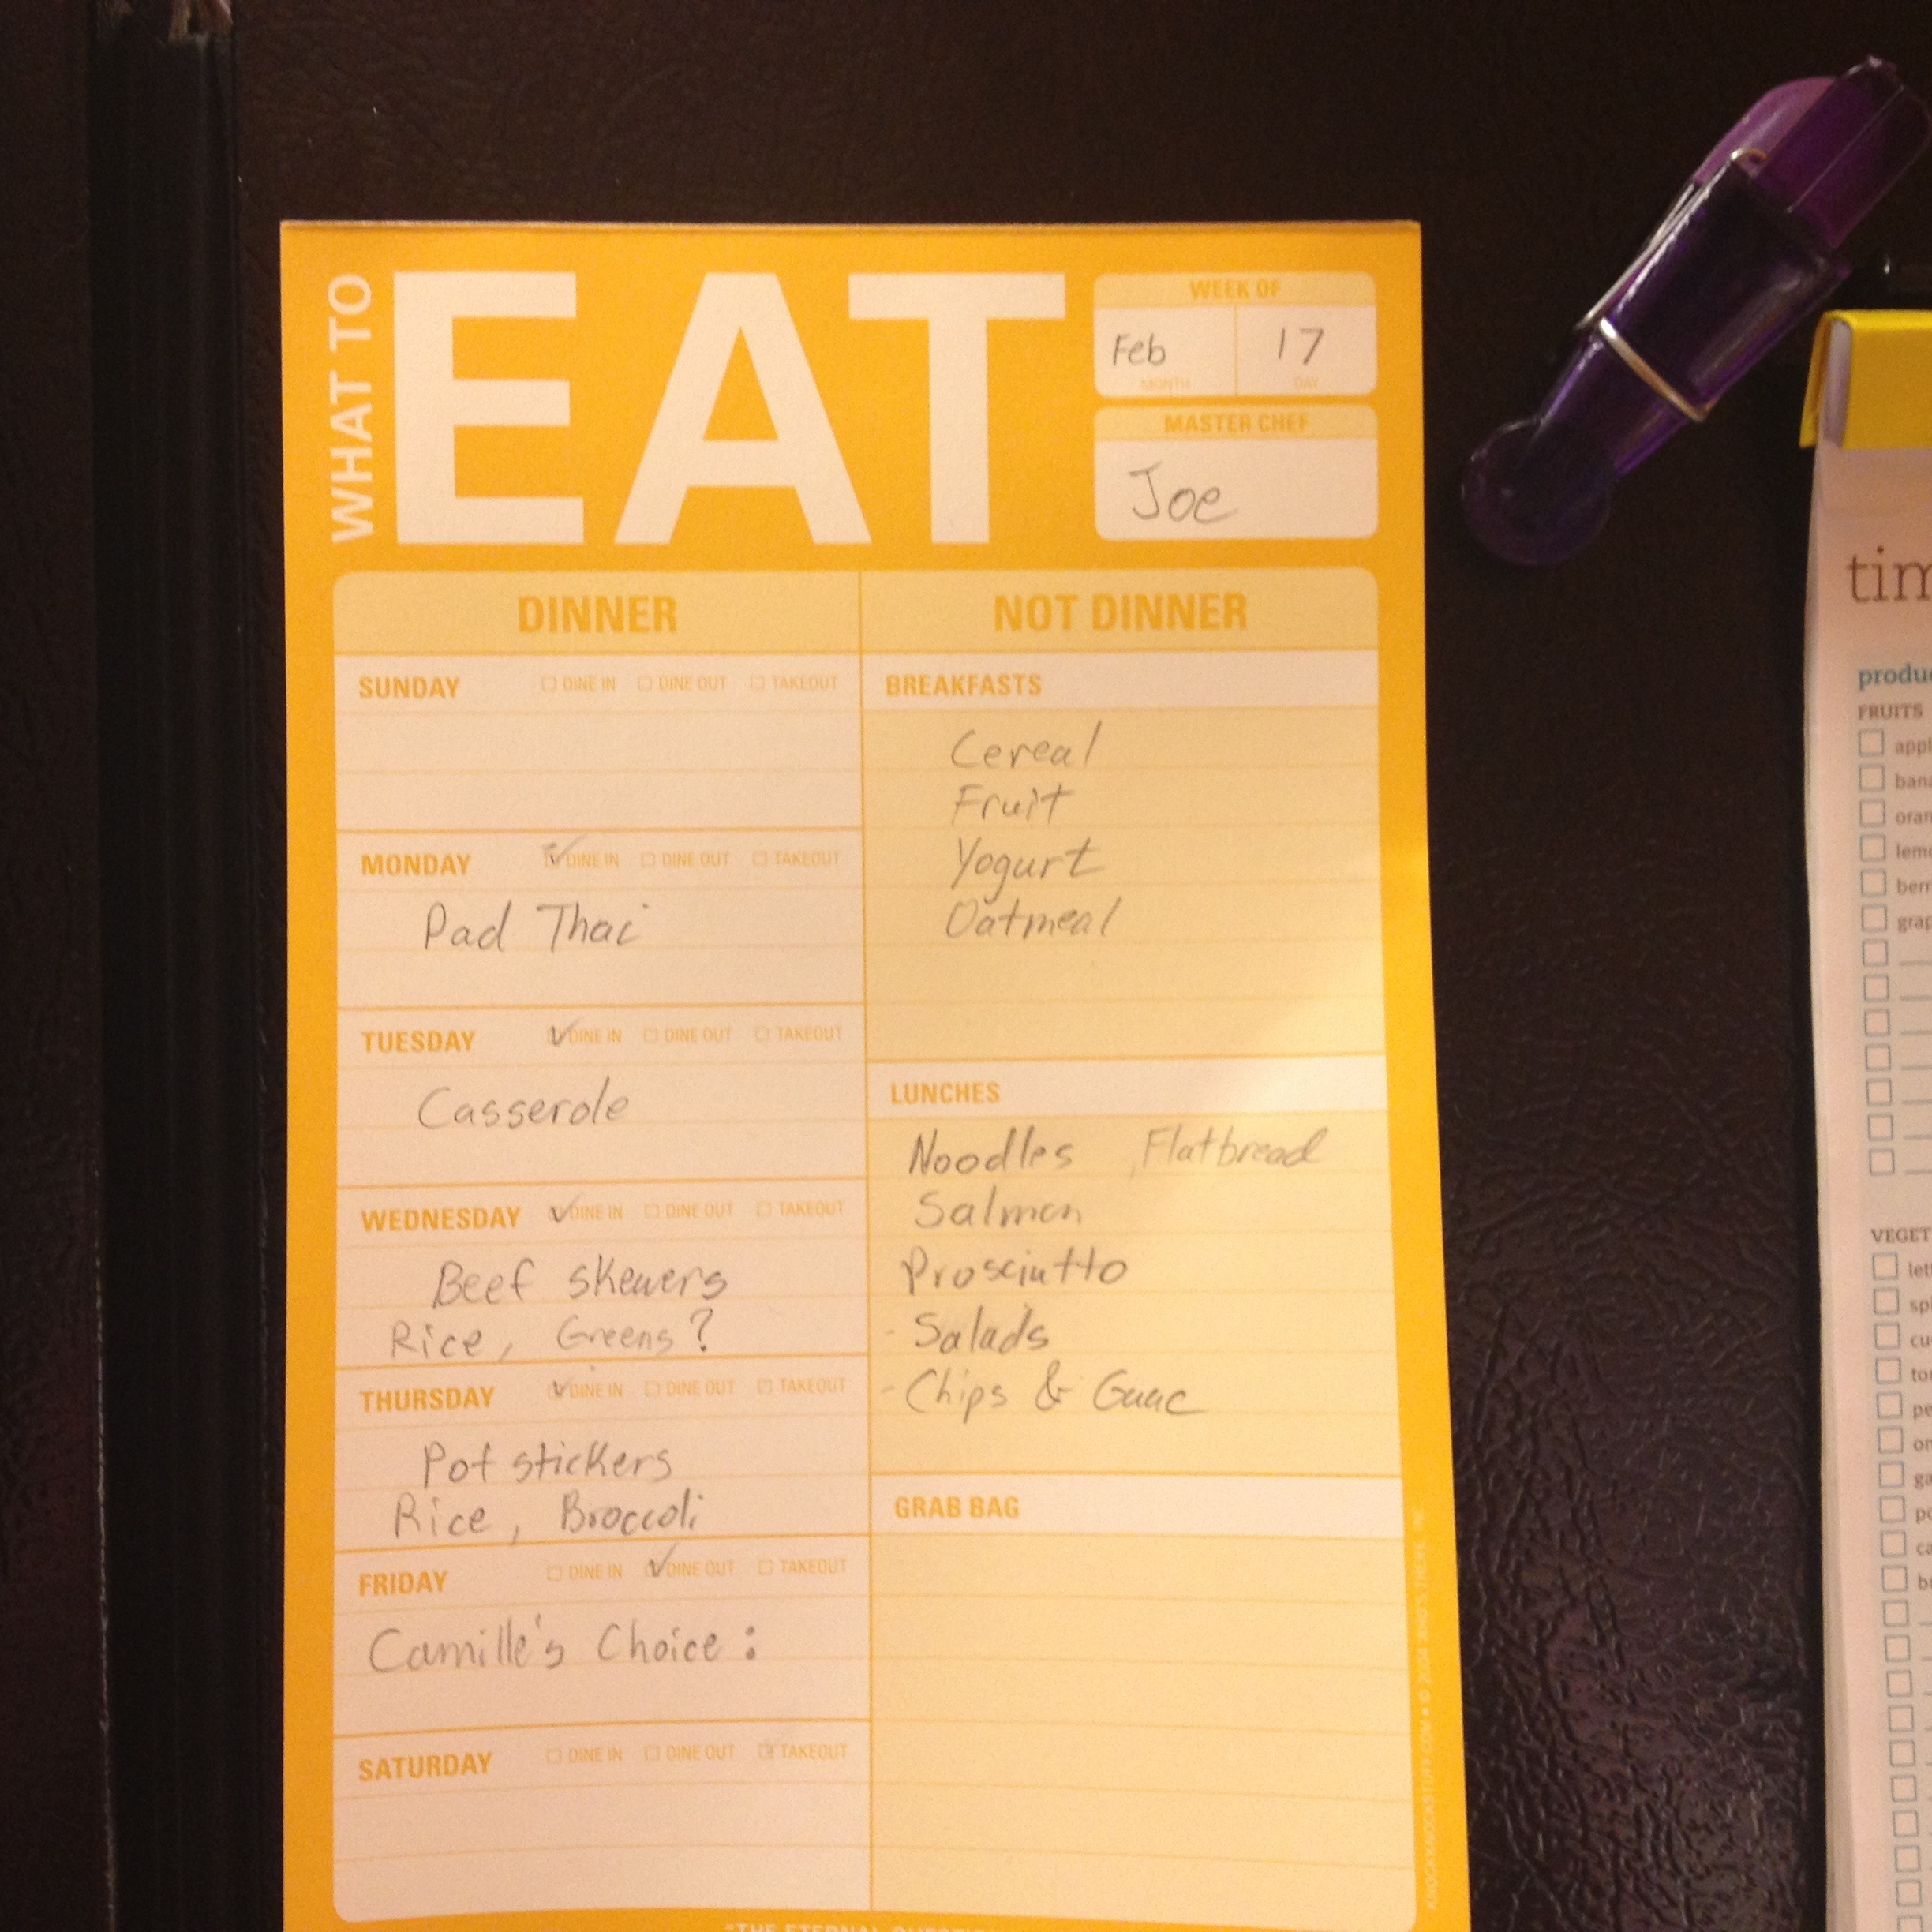 WHAT TO
EAT
WEEK OF
Feb 17
MONTH DAY
MASTER CHEF
Joe
DINNER
SUNDAY DINE IN DINE OUT TAKEOUT
MONDAY DINE IN DINE OUT TAKEOUT
Pad Thai
TUESDAY DINE IN DINE OUT TAKEOUT
Casserole
WEDNESDAY DINE IN DINE OUT TAKEOUT
Beef skewers
Rice, Greens?
THURSDAY DINE IN DINE OUT TAKEOUT
Pot stickers
Rice, Broccoli
FRIDAY DINE IN DINE OUT TAKEOUT
Camille's Choice:
SATURDAY DINE IN DINE OUT TAKEOUT
NOT DINNER
BREAKFASTS
Cereal
Fruit
Yogurt
Oatmeal
LUNCHES
Noodles , Flatbread
Salmon
Prosciutto
- Salads
- Chips & Guac
GRAB BAG
"THE ETERNAL
tim
produ
FRUITS
appl
bana
oran
lemo
berr
grap
VEGET
lett
spi
cu
to
pe
on
ga
po
ca
br